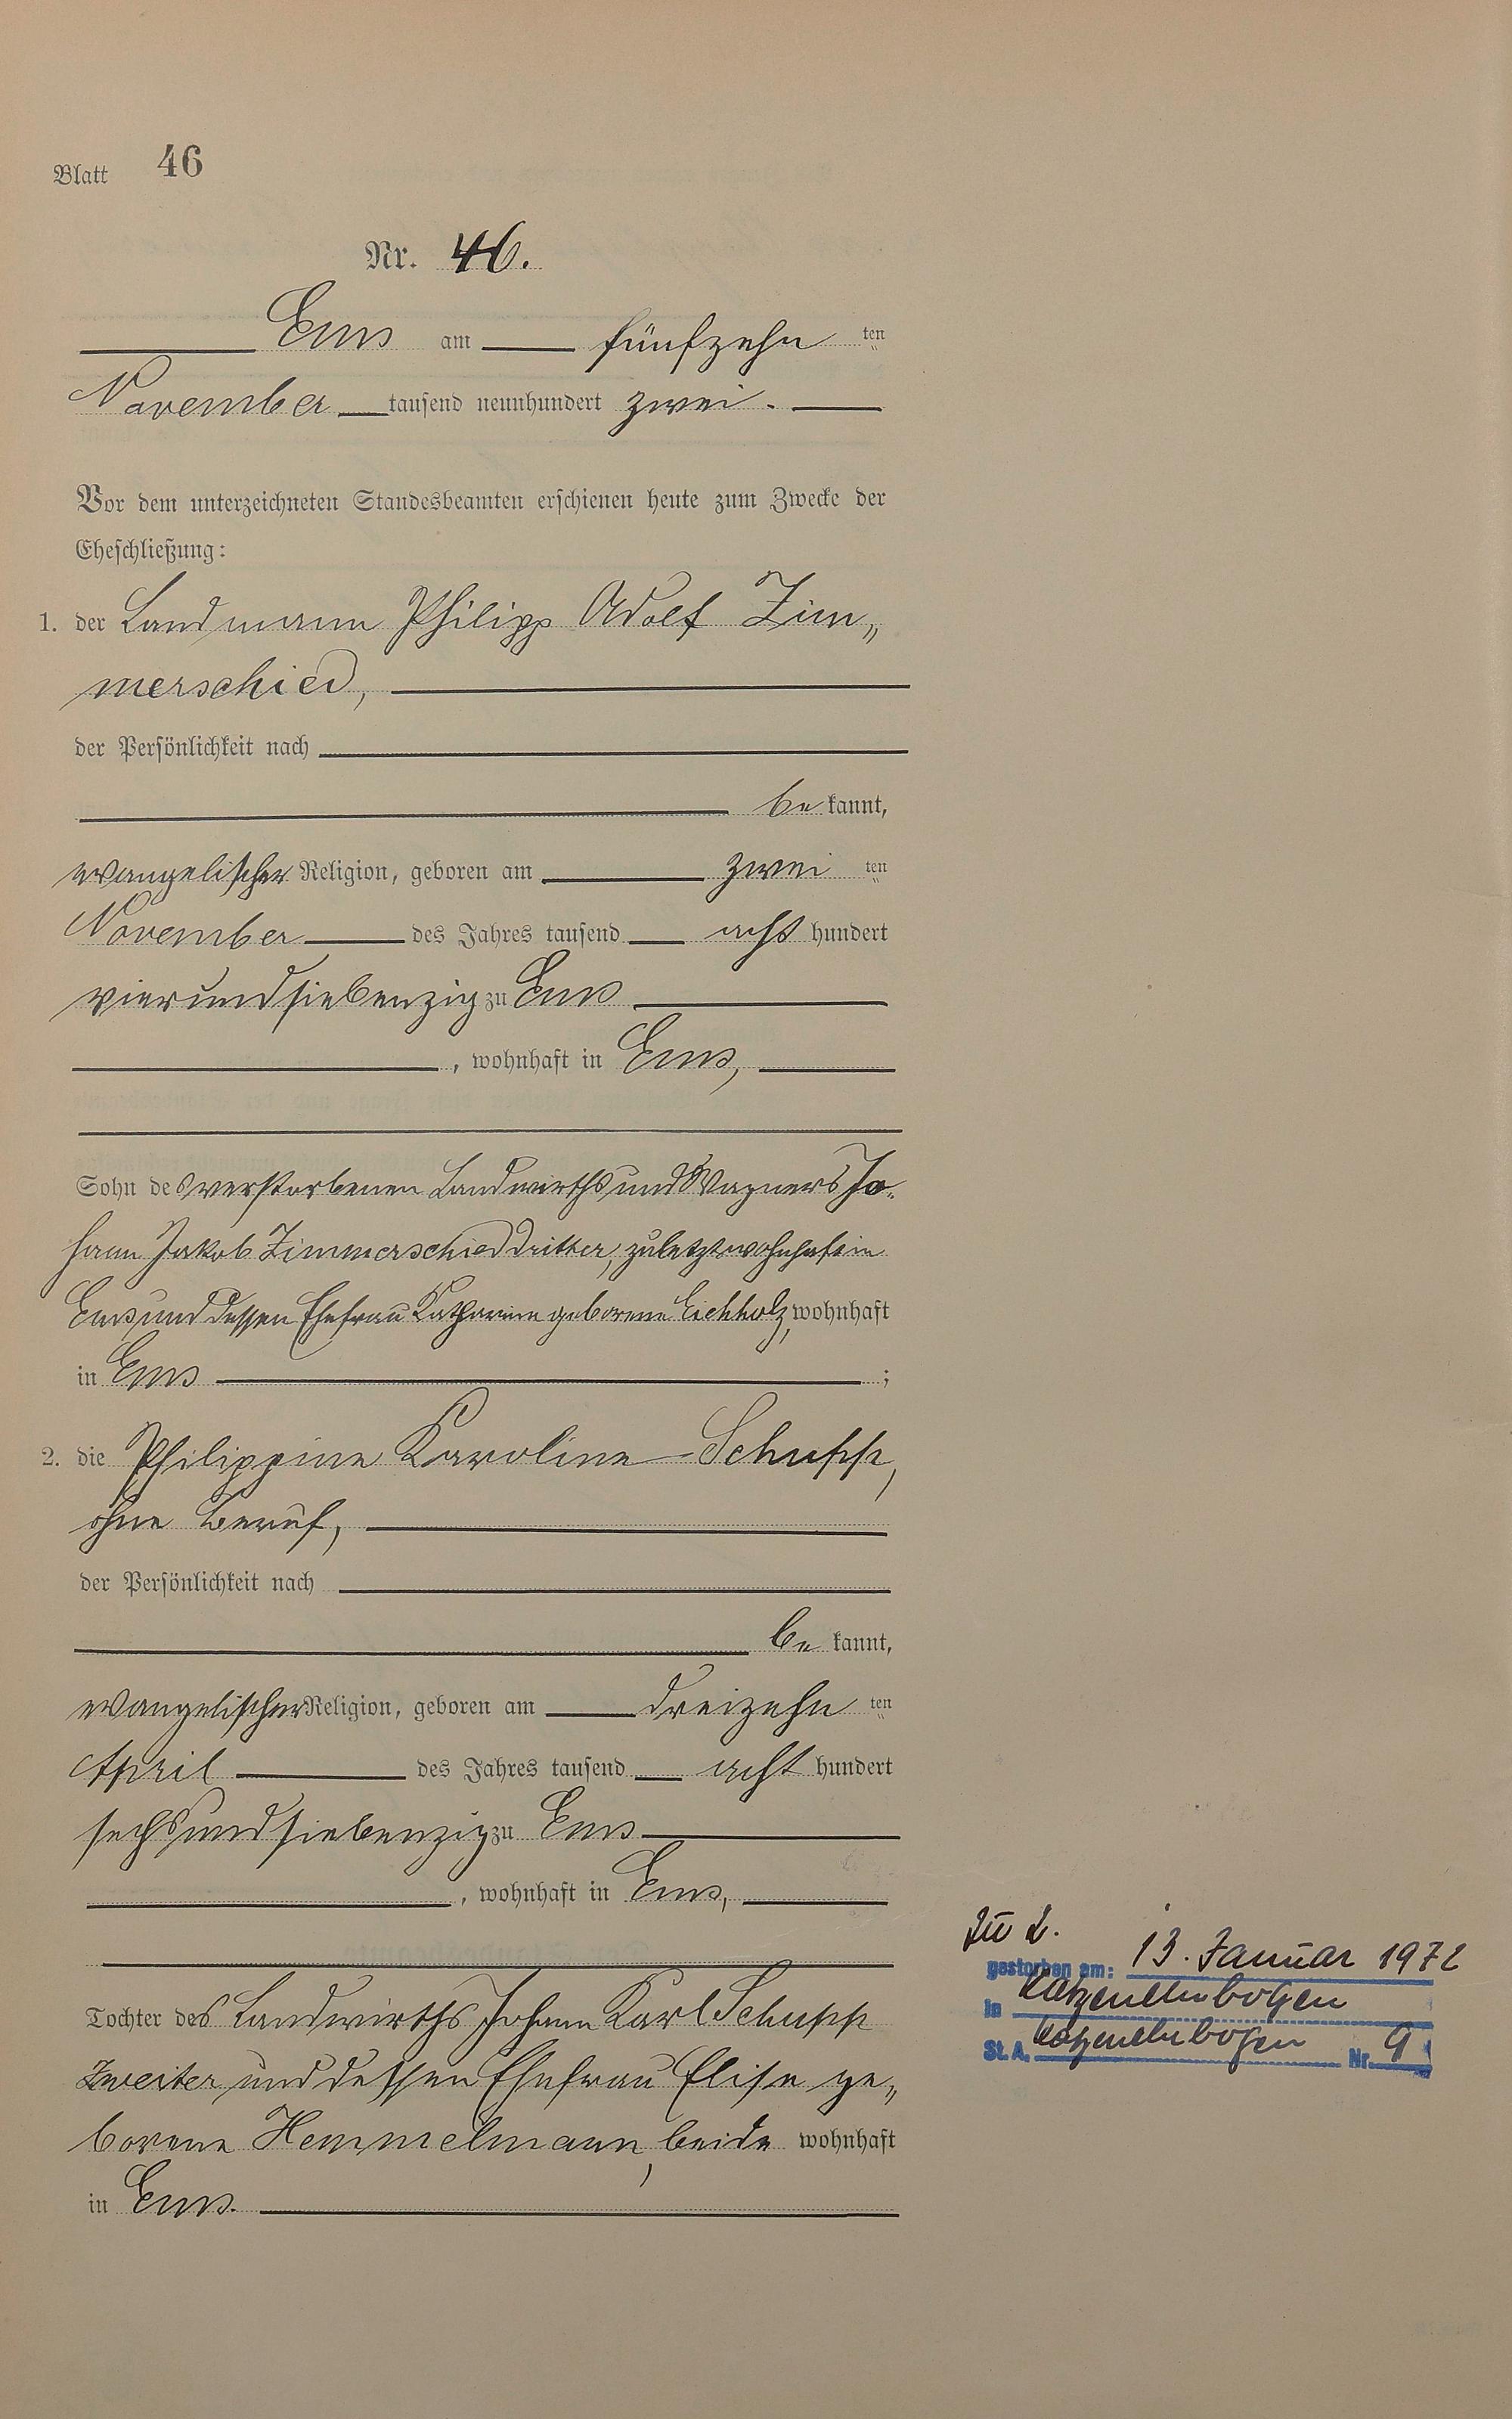 Blatt 46
Nr. 46.
Ems am fünfzehn ten
November tausend neunhundert zwei.
Vor dem unterzeichneten Standesbeamten erschienen heute zum Zwecke der
Eheschließung:
1. der Landmann Philipp Adolf Zim„
merschied,
der Persönlichkeit nach
be kannt,
evangelischer Religion, geboren am zwei ten
November des Jahres tausend acht hundert
vierundsiebenzig zu Ems
, wohnhaft in Ems,
Sohn des verstorbenen Landwirths und Wagners Jo„
hann Jakob Zimmerschied dritter, zuletzt wohnhaft in
Ems und dessen Ehefrau Katharine geborene Eichholz, wohnhaft
in Ems ;
2. die Philippine Karoline Schupp,
ohne Beruf,
der Persönlichkeit nach
be kannt,
evangelischer Religion, geboren am dreizehn ten
April des Jahres tausend acht hundert
sechsundsiebenzig zu Ems
, wohnhaft in Ems,
Tochter des Landwirths Johann Karl Schupp
zweiter und dessen Ehefrau Elise ge„
borene Hemmelmann, beide wohnhaft
in Ems.
Zu 2.
gestorben am: 13. Januar 1972
in Katzenelnbogen
St. A. Katzenelnbogen Nr. 9